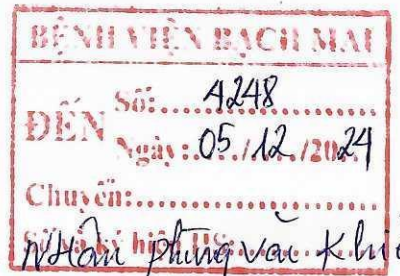 BỆNH VIỆN BẠCH MAI
ĐẾN
Số: 4248
Ngày: 05/12/2024
Chuyển:
Số và ký hiệu HS:
phùng văn Khi